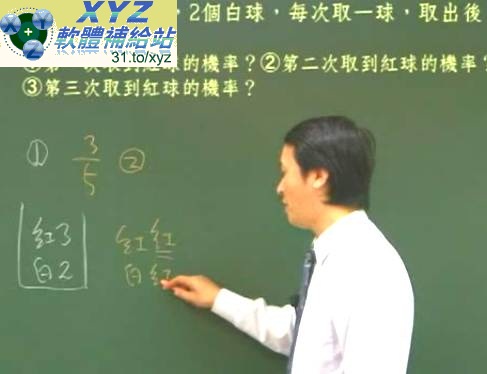 XYZ
軟體補給站
31.to/xyz
，2個白球，每次取一球，取出後
次取到紅球的機率？②第二次取到紅球的機率？
③第三次取到紅球的機率？
① 3/5 ②
紅3
白2
紅紅
白紅